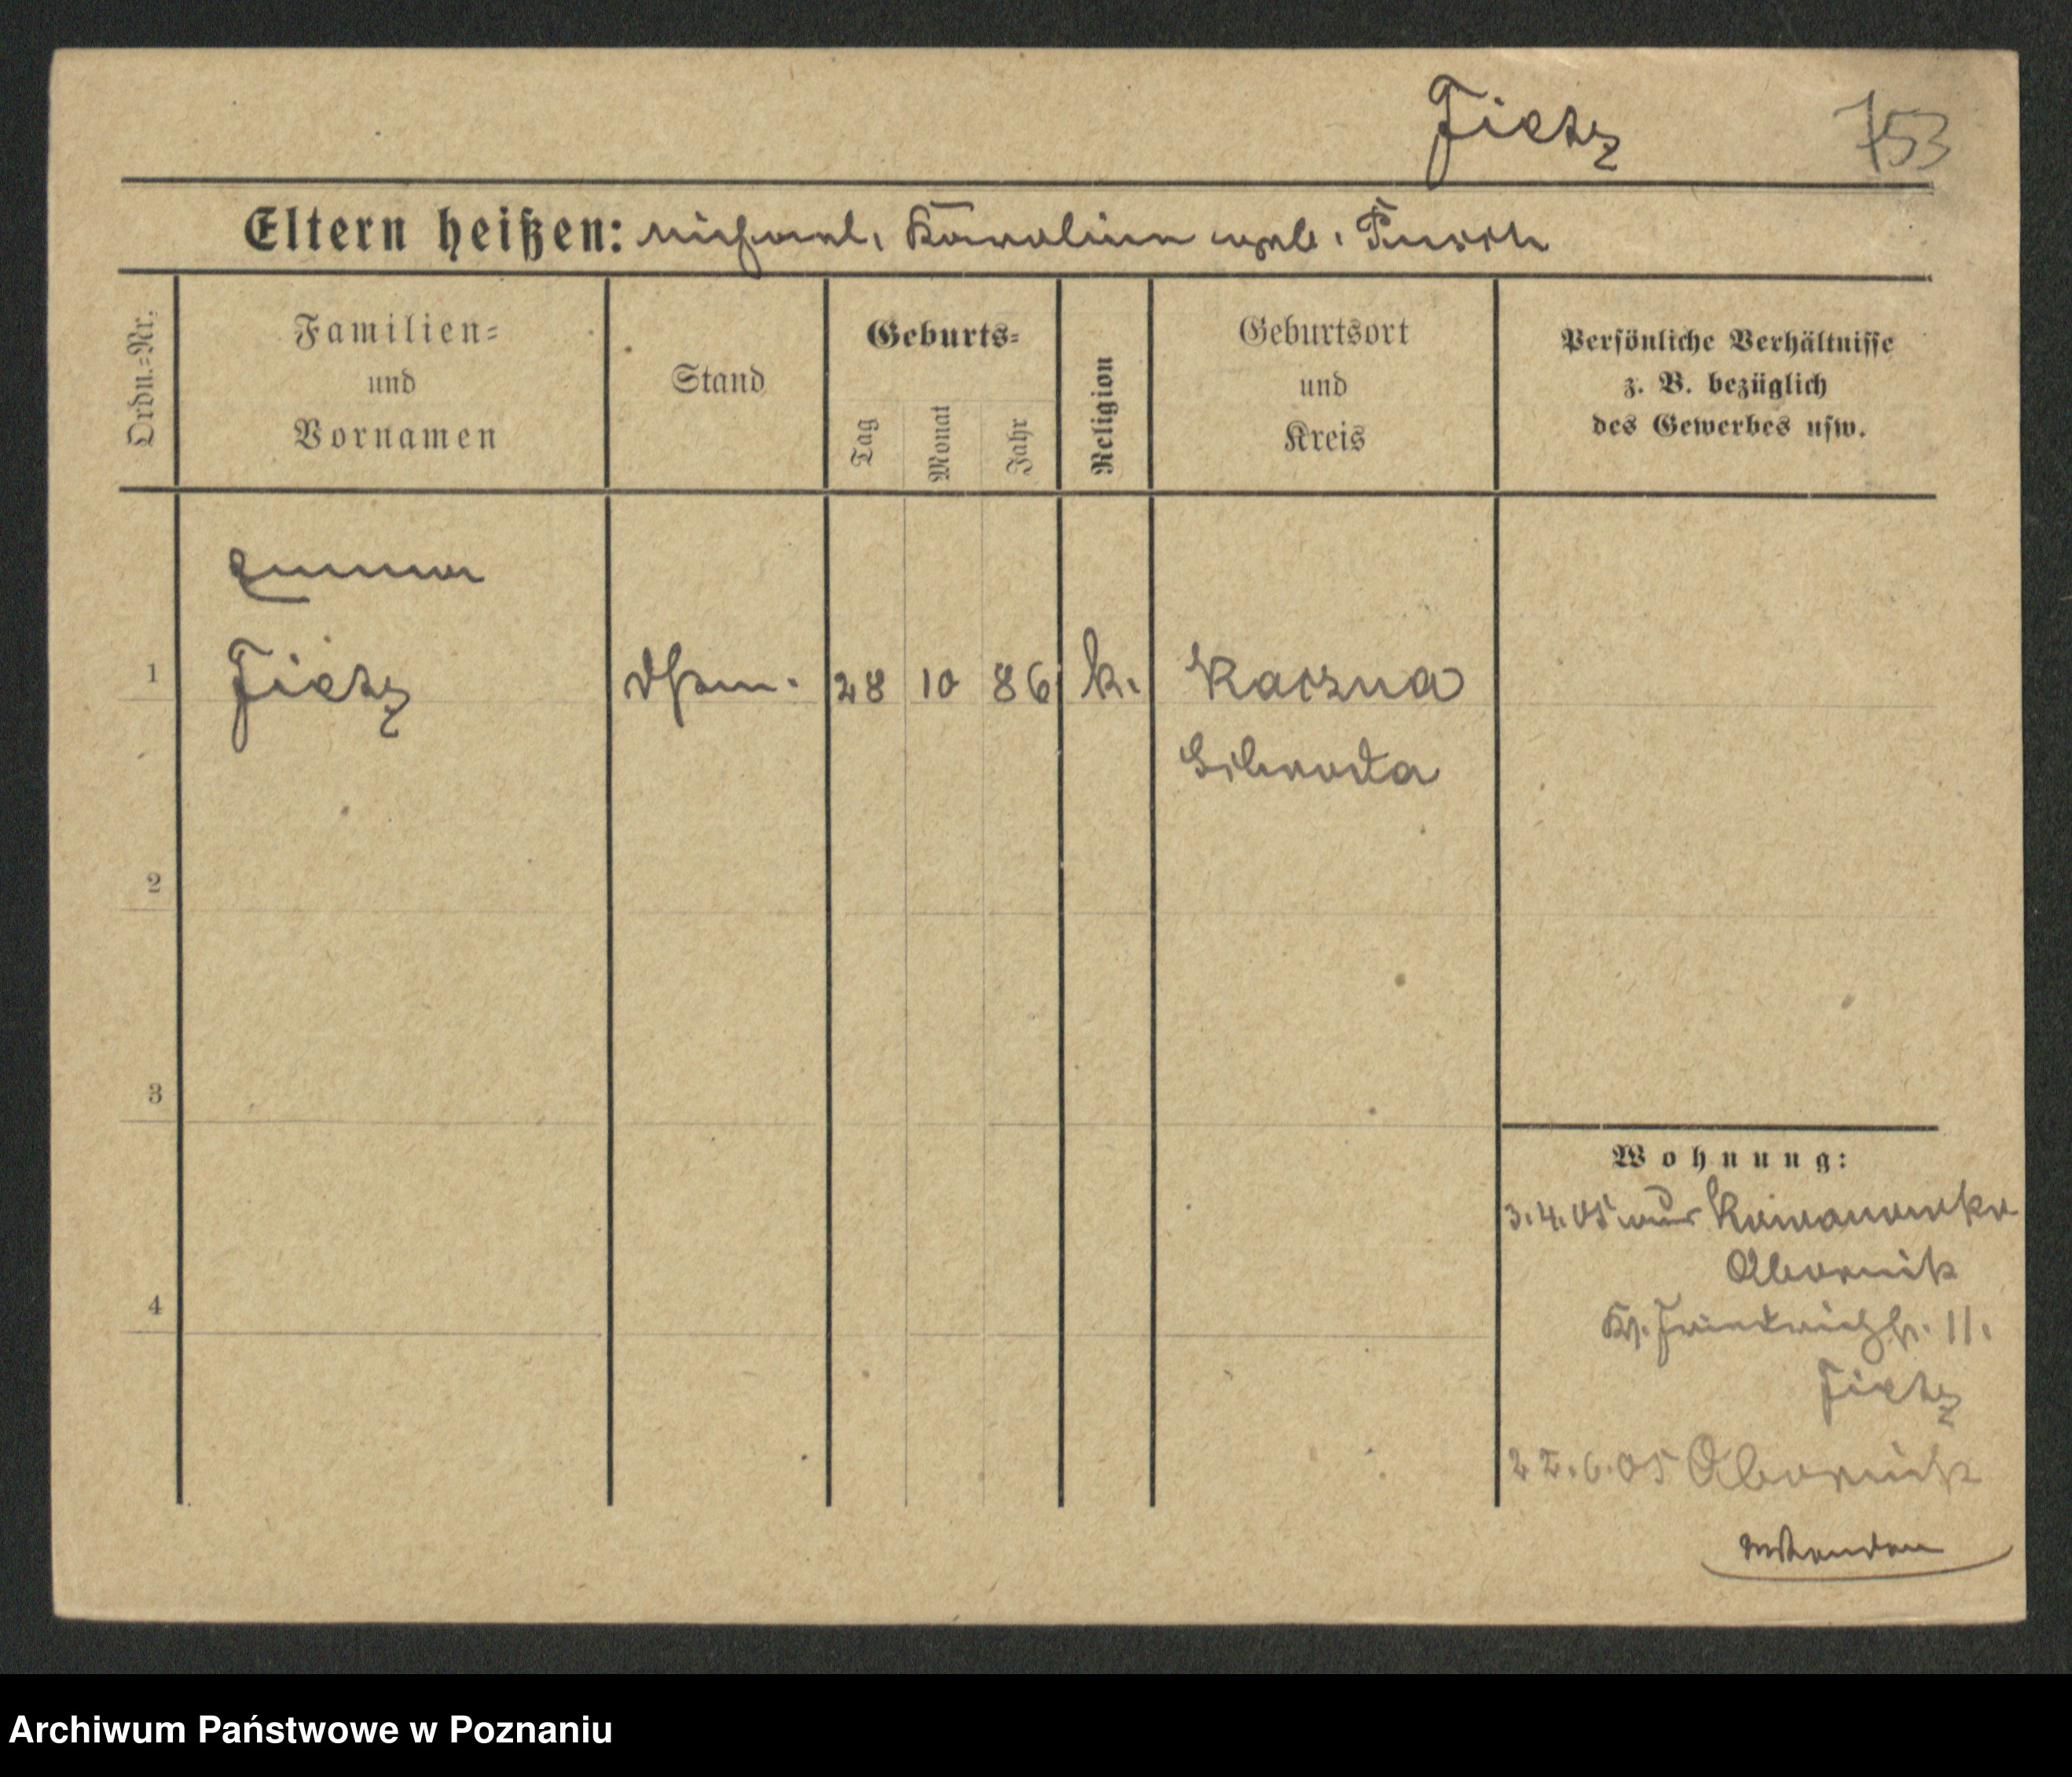 Fietz 753
Eltern heißen: Michael, Karoline geb.
Ordn.-Nr.
Familien-
und
Vornamen
Stand
Geburts-
Tag
Monat
Jahr
Religion
Geburtsort
und
Kreis
Persönliche Verhältnisse
z. B. bezüglich
des Gewerbes usw.
Emma
1 Fietz 28 10 86 k.
Schroda
2
3
4
Wohnung:
3.4.05 aus
Obornik
Fietz
22.6.05 Obornik
Archiwum Państwowe w Poznaniu